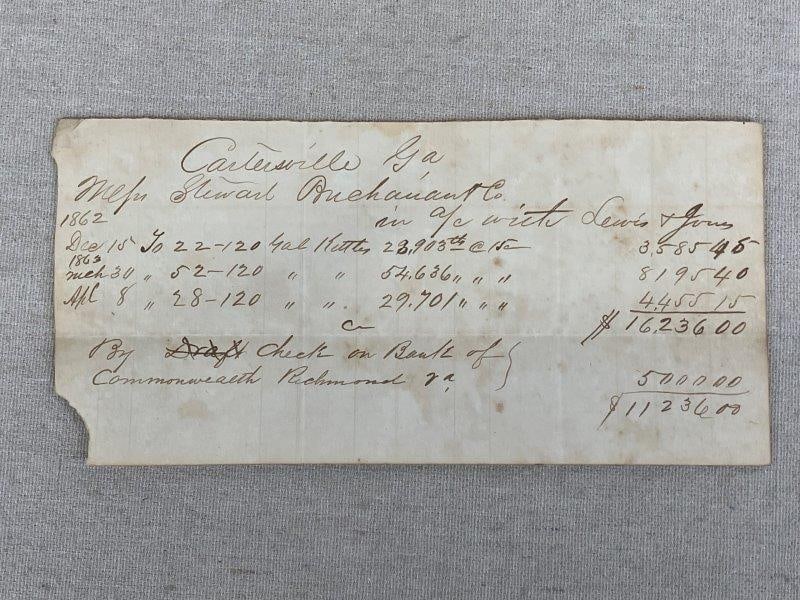 Cartersville Ga
Messrs Stewart Buchanan & Co.
1862 in a/c with Lewis & Jones
Dec 15 To 22-120 Gal Kettles 23,903 lb @ 15c 3,585 45
1863
mch 30 " 52-120 " " 54,636 " " " 8195 40
Apl 8 " 28-120 " " 29,701 " " " 4,455 15
Cr $ 16,236 00
By Draft Check on Bank of
Commonwealth Richmond Va 5000 00
$ 11236 00